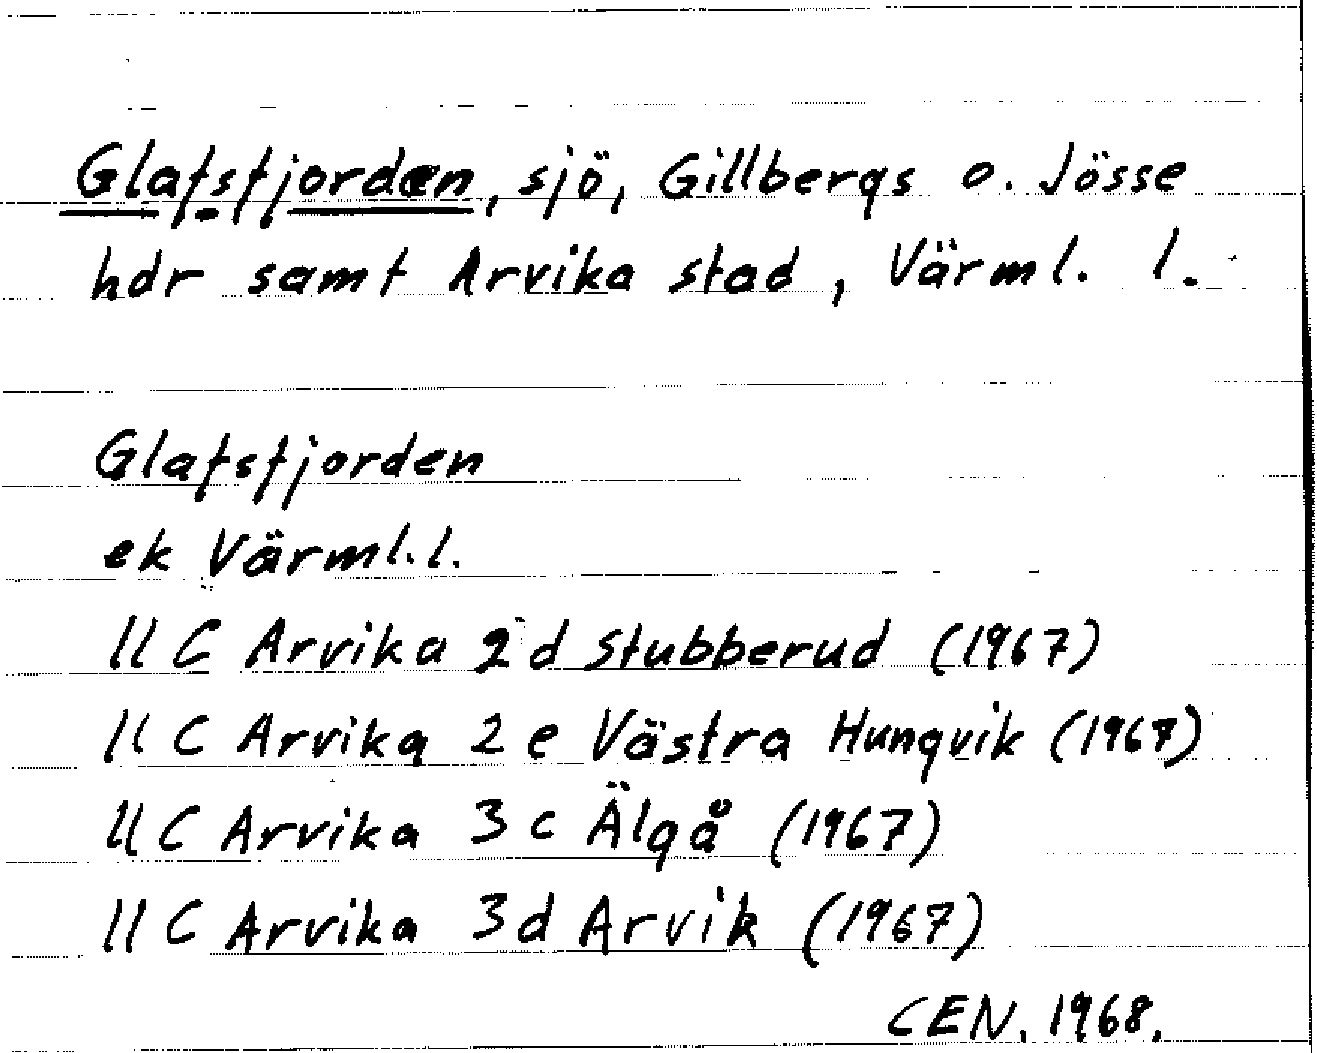 Glafsfjorden, sjö, Gillbergs o. Jösse
hdr samt Arvika stad, Värml. l.
Glafsfjorden
ek Värml.l.
11 C Arvika 2 d Stubberud (1967)
11 C Arvika 2 e Västra Hungvik (1967)
11 C Arvika 3 c Älgå (1967)
11 C Arvika 3 d Arvik (1967)
CEN. 1968.